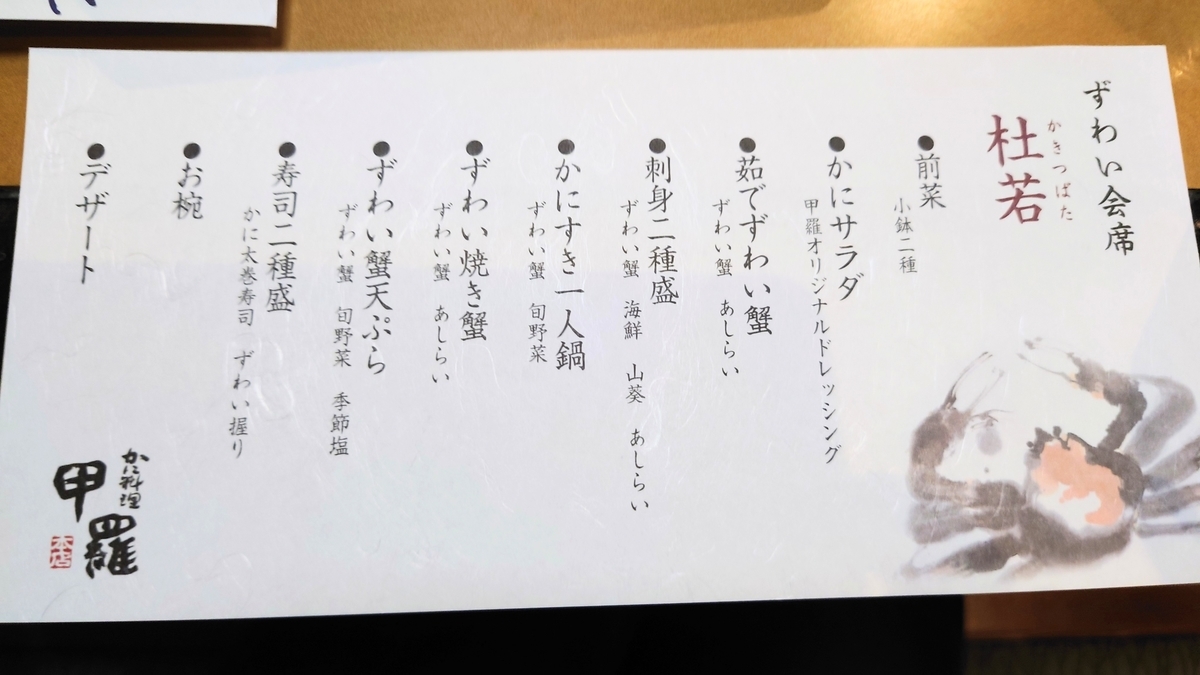 ずわい会席
かきつばた
杜若
●前菜
小鉢二種
●かにサラダ
甲羅オリジナルドレッシング
●茹でずわい蟹
ずわい蟹 あしらい
●刺身二種盛
ずわい蟹 海鮮 山葵 あしらい
●かにすき一人鍋
ずわい蟹 旬野菜
●ずわい焼き蟹
ずわい蟹 あしらい
●ずわい蟹天ぷら
ずわい蟹 旬野菜 季節塩
●寿司二種盛
かに太巻寿司 ずわい握り
●お椀
●デザート
かに料理
甲羅
本店